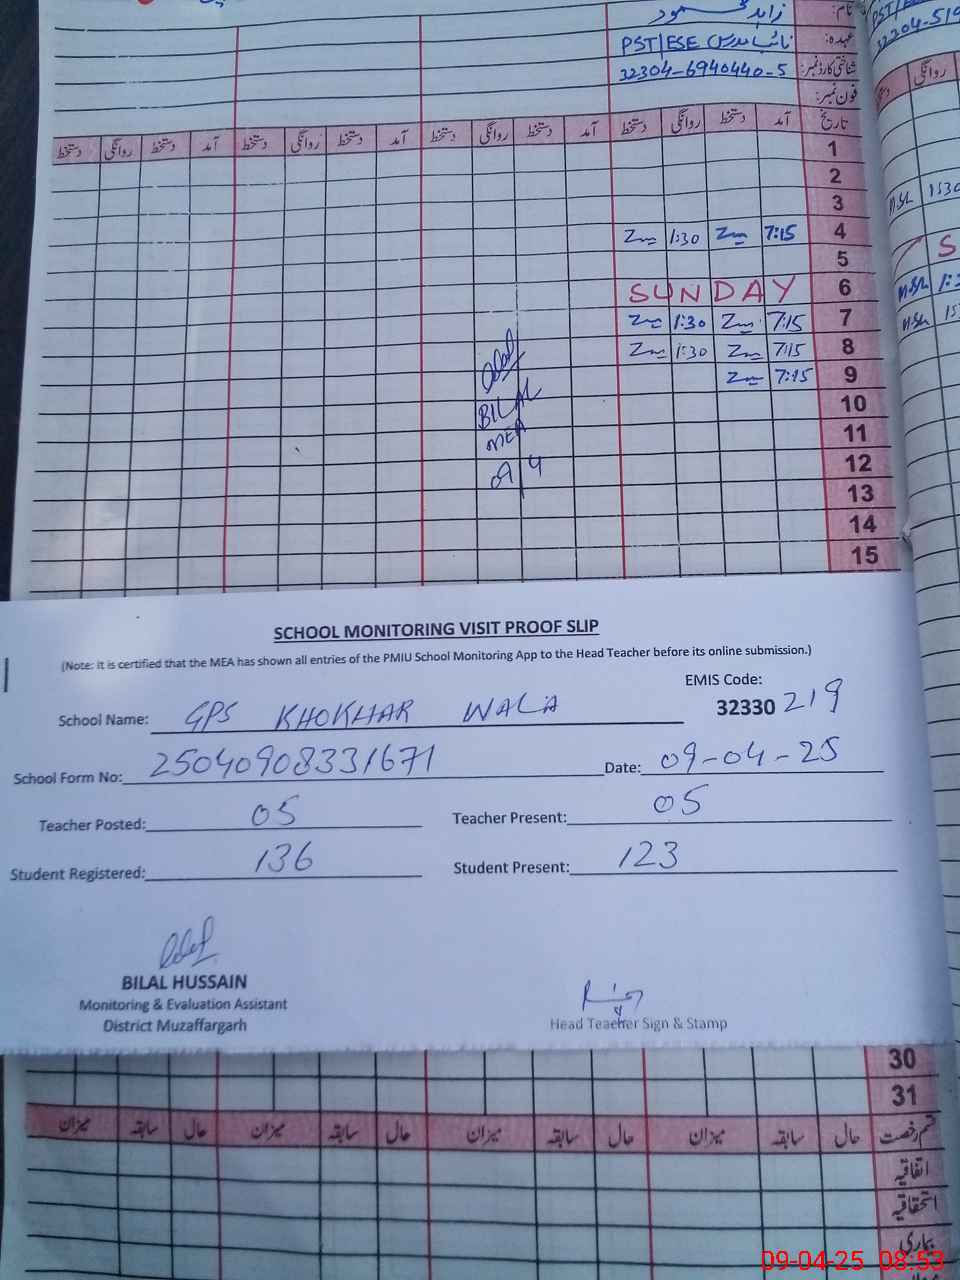 نام: زاہد محمود
عہدہ: نائب مدرس PST/ESE
شناختی کارڈ نمبر: 32304-6940440-5
فون نمبر:
تاریخ آمد دستخط روانگی دستخط آمد دستخط روانگی دستخط آمد دستخط روانگی دستخط آمد دستخط روانگی دستخط
1
2
3
4 7:15 1:30
5
6 SUNDAY
7 7:15 1:30
8 7:15 1:30
9 7:15
10
BILAL
11
MEA
12
09 4
13
14
15
SCHOOL MONITORING VISIT PROOF SLIP
(Note: It is certified that the MEA has shown all entries of the PMIU School Monitoring App to the Head Teacher before its online submission.)
EMIS Code:
School Name: GPS KHOKHAR WALA 32330 219
School Form No: 25040908331671 Date: 09-04-25
Teacher Posted: 05 Teacher Present: 05
Student Registered: 136 Student Present: 123
BILAL HUSSAIN
Monitoring & Evaluation Assistant
District Muzaffargarh
Head Teacher Sign & Stamp
30
31
قسم رخصت حال سابقہ میزان حال سابقہ میزان حال سابقہ میزان حال سابقہ میزان
اتفاقیہ
استحقاقیہ
بیماری
09-04-25 08:53